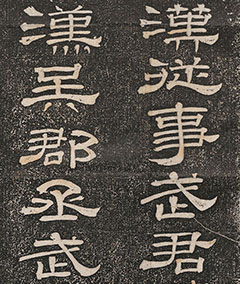 漢從事武君
漢吳郡丞武